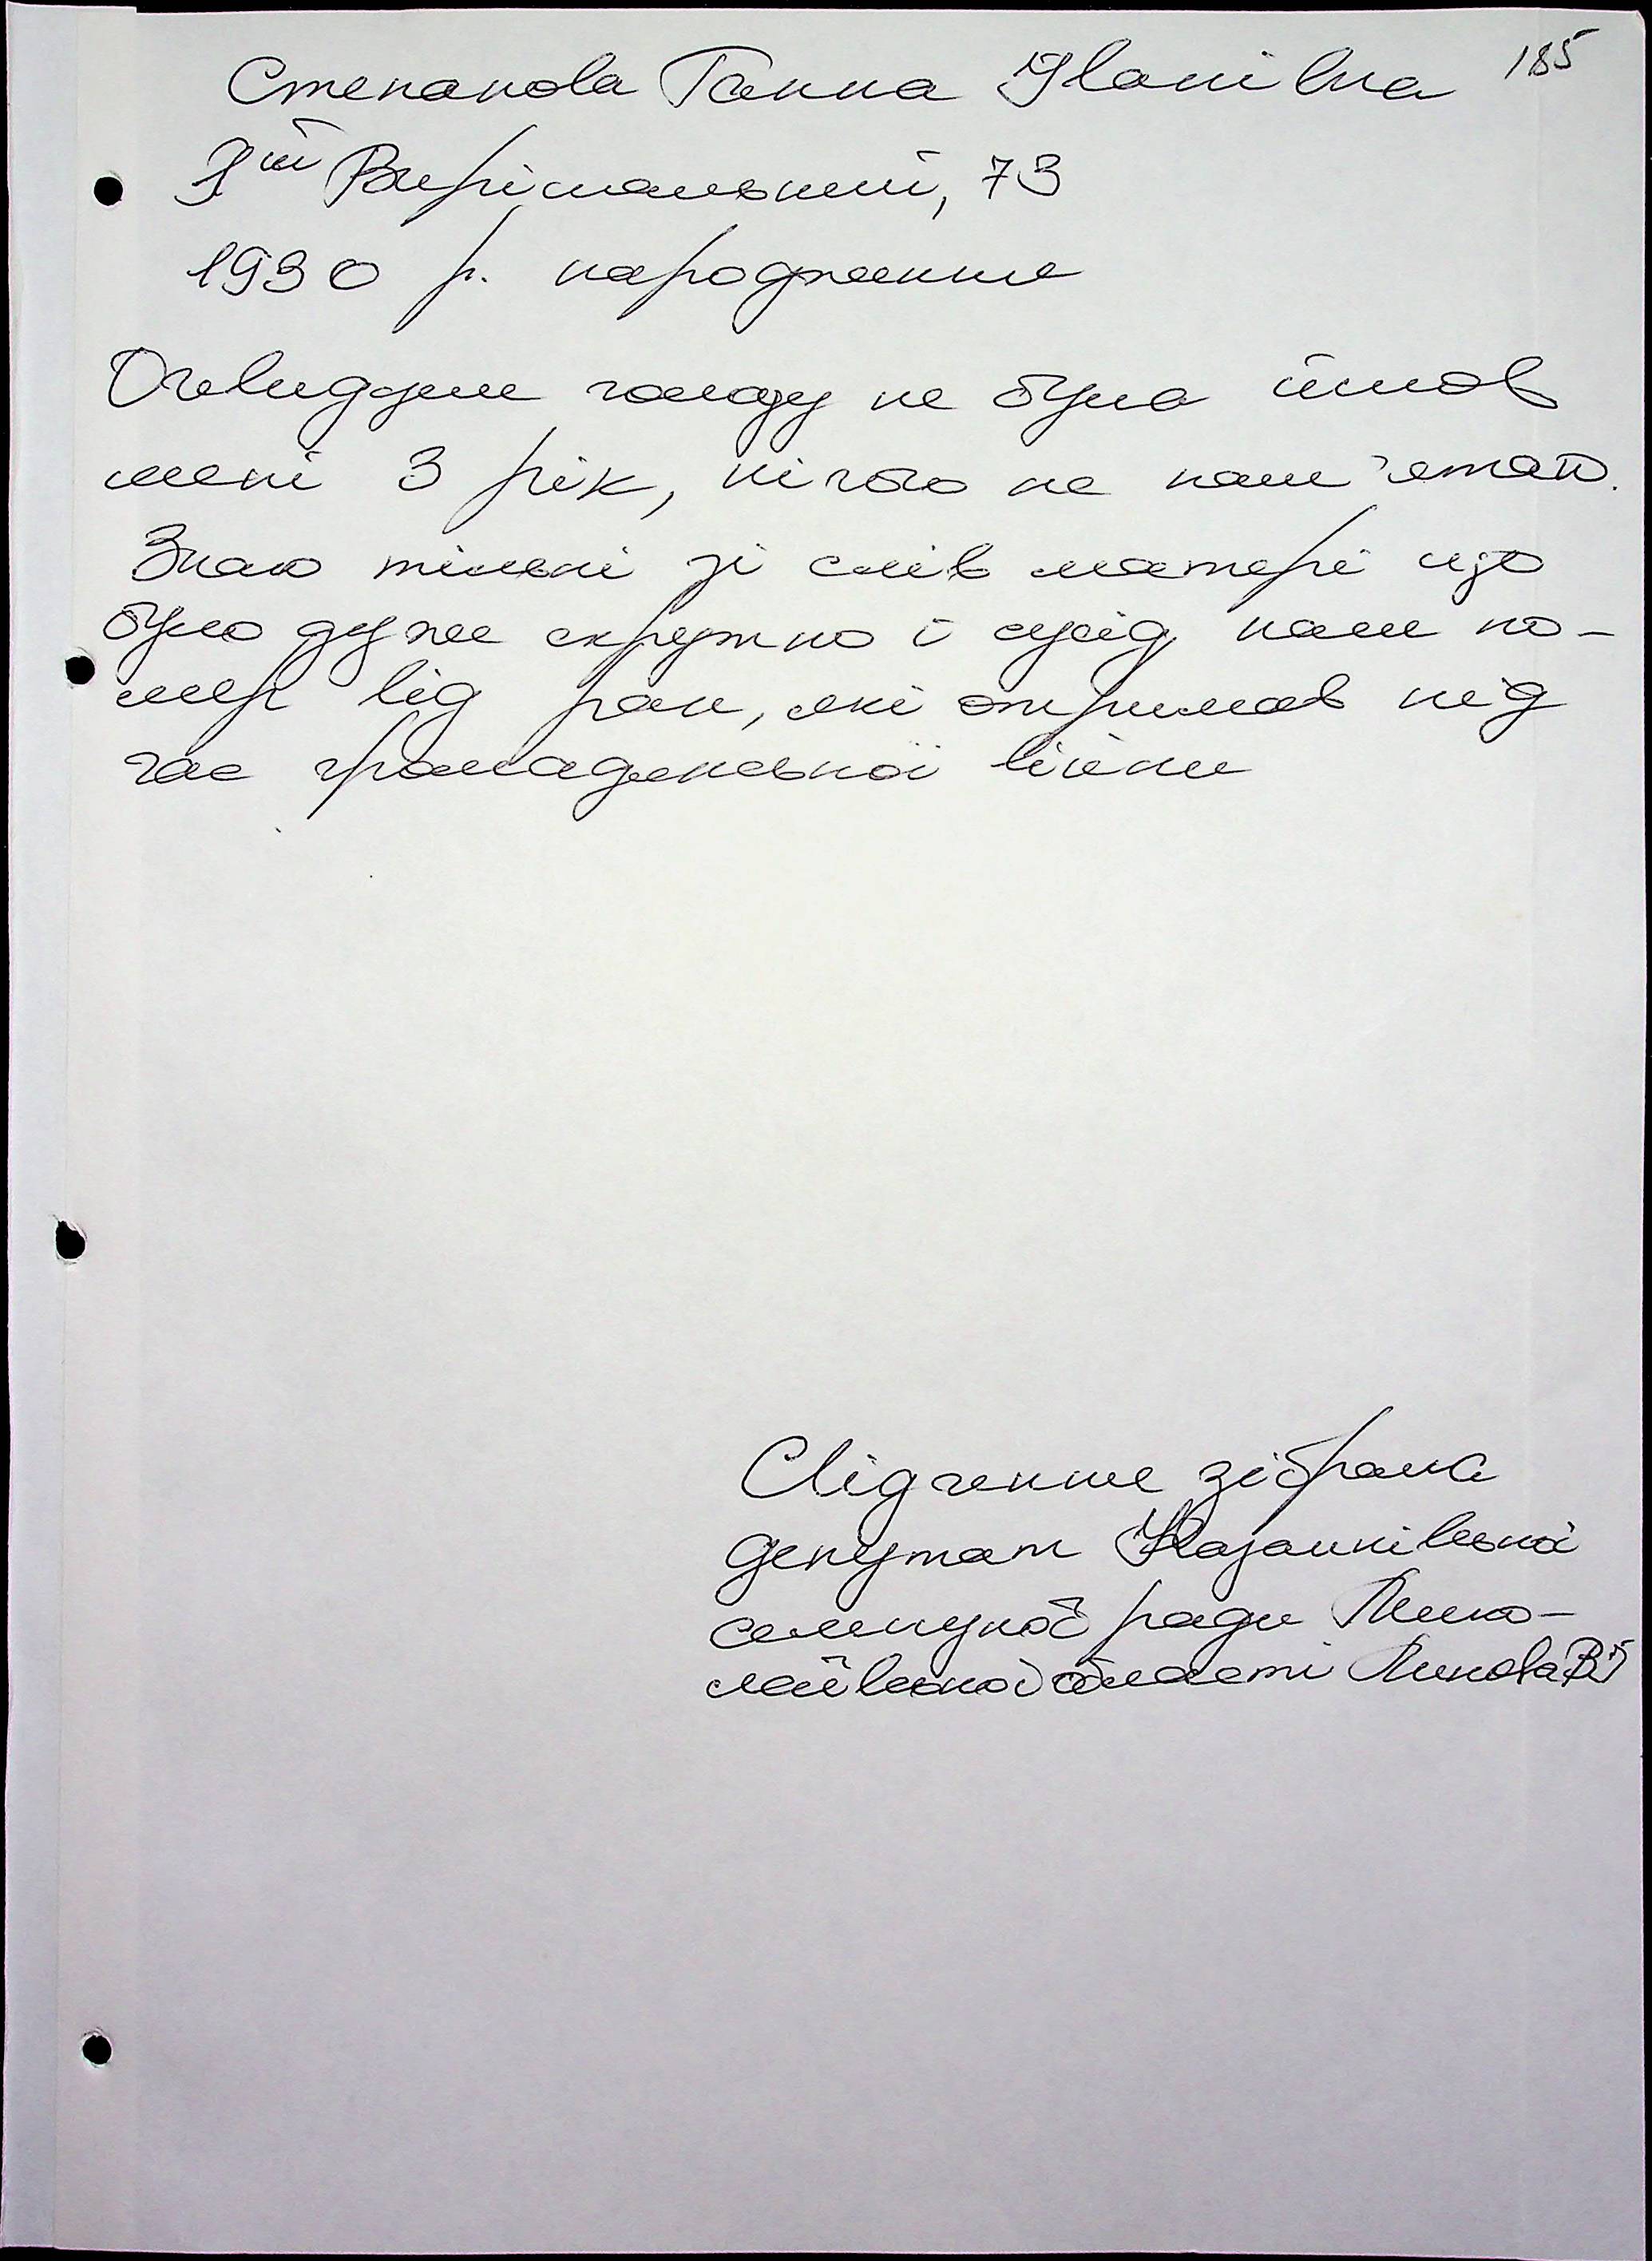 185
Степанова Ганна Іванівна
1ий Вирішальний, 73
1930 р. народження
Очевидцем голоду не була йшов
мені 3 рік, нічого не пам'ятаю.
Знаю тільки зі слів матері що
було дуже скрутно і сусід наш по-
мер від ран, які отримав під
час громадянської війни
Свідчення зібрана
депутат Казанківської
селищної ради Мико-
лаївської області Лимова В